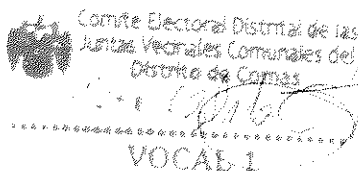 Comite Electoral Distrital de las
Juntas Vecinales Comunales del
Distrito de Comas
VOCAL 1